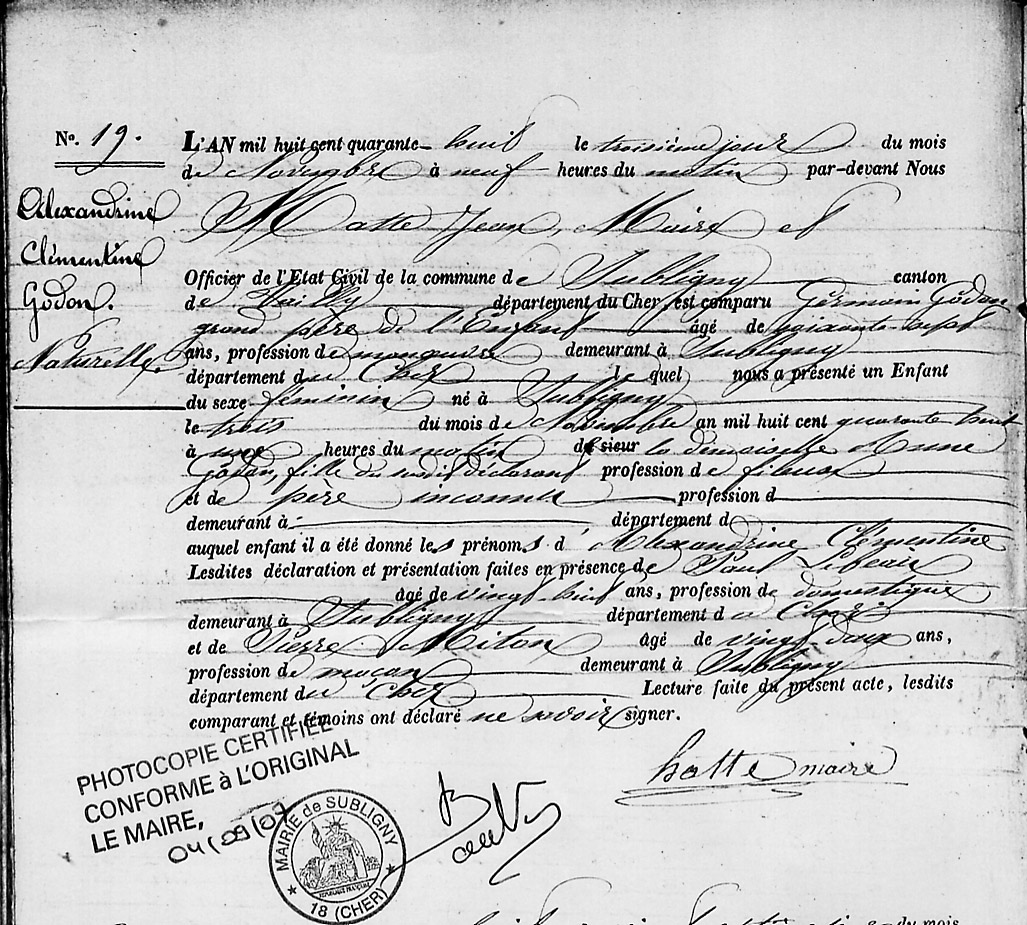 N°. 19.
Alexandrine
Clémentine
Godon.
Naturelle.
L'AN mil huit cent quarante-huit le troisième jour du mois
de Novembre à neuf heures du matin par-devant Nous
Hatte Jean, Maire et
Officier de l'Etat Civil de la commune de Subligny canton
de Vailly département du Cher, est comparu Germain Godon
grand père de l'Enfant âgé de soixante-sept
ans, profession de manœuvre demeurant à Subligny
département du Cher le quel nous a présenté un Enfant
du sexe féminin né à Subligny
le trois du mois de Novembre an mil huit cent quarante huit
à une heures du matin de sieur la demoiselle Anne
Godon, fille du dit déclarant profession de fileuse
et de père inconnu profession d
demeurant à département d
auquel enfant il a été donné les prénoms d'Alexandrine Clémentine
Lesdites déclaration et présentation faites en présence de Paul
âgé de vingt huit ans, profession de domestique
demeurant à Subligny département du Cher
et de Pierre Miton âgé de vingt deux ans,
profession de maçon demeurant à Subligny
département du Cher Lecture faite du présent acte, lesdits
comparant et témoins ont déclaré ne savoir signer.
hatte maire
PHOTOCOPIE CERTIFIÉE
CONFORME à L'ORIGINAL
LE MAIRE,
04/09/07
MAIRIE de SUBLIGNY
18 (CHER)
du mois